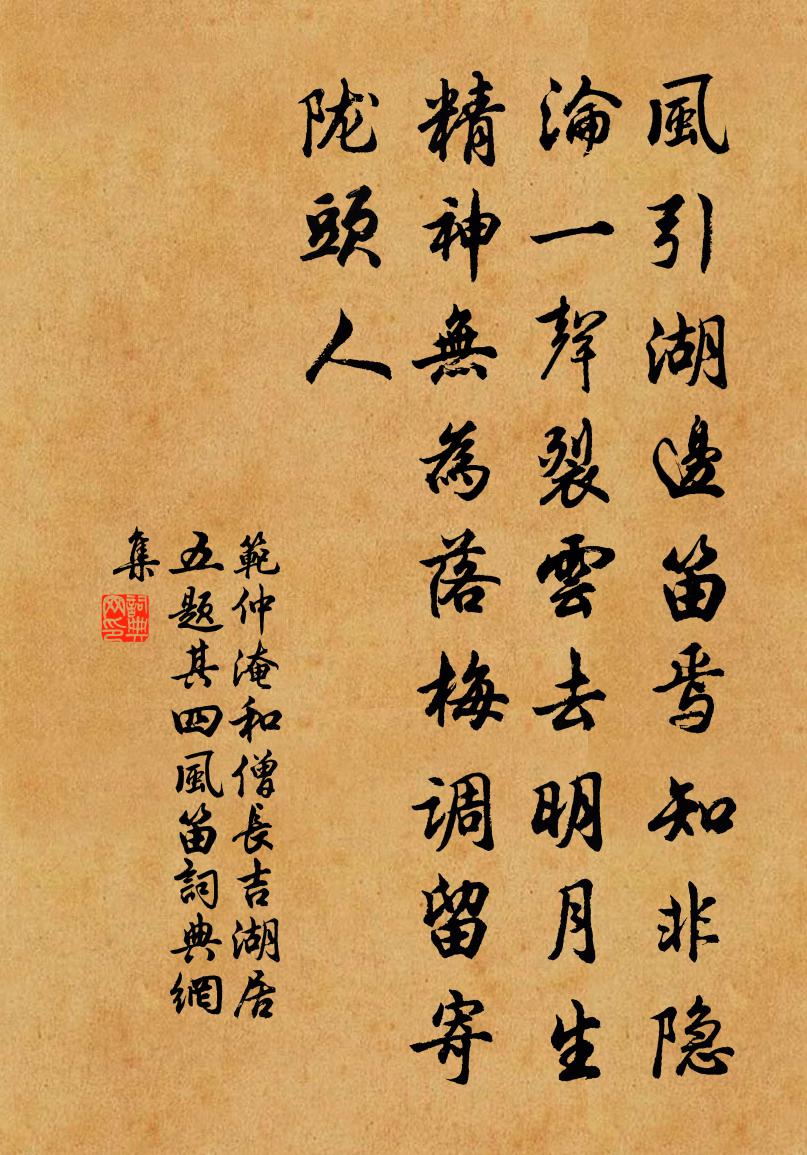 風引湖邊笛焉知非隐
淪一聲裂雲去明月生
精神無為落梅调留寄
陇頭人
範仲淹和僧長吉湖居
五题其四風笛詞典網
集
詞典網印